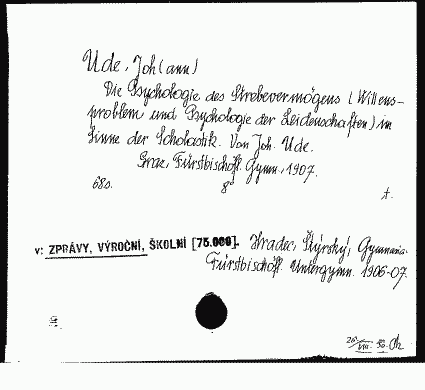 Ude, Joh(ann)
Die Psychologie des Strebevermögens (Willens-
problem und Psychologie der Leidenschaften) im
Sinne der Scholastik. Von Joh. Ude.
Graz, Fürstbischöfl. Gymn., 1907.
68s. 8° t.
v: ZPRÁVY, VÝROČNÍ, ŠKOLNÍ [75.000]. Hradec, Štýrský, Gymnasia.
Fürstbischöfl. Untergymn. 1906-07.